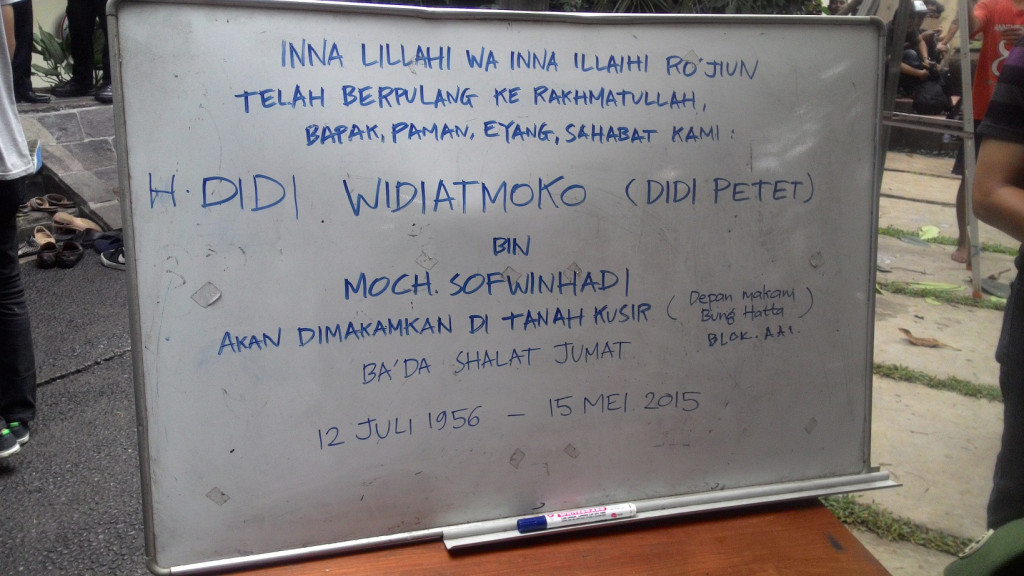 INNA LILLAHI WA INNA ILLAIHI RO'JIUN
TELAH BERPULANG KE RAKHMATULLAH,
BAPAK, PAMAN, EYANG, SAHABAT KAMI :
H. DIDI WIDIATMOKO (DIDI PETET)
BIN
MOCH. SOFWINHADI
AKAN DIMAKAMKAN DI TANAH KUSIR (Depan makam
Bung Hatta)
BLOK. AA1.
BA'DA SHALAT JUMAT
12 JULI 1956 – 15 MEI 2015